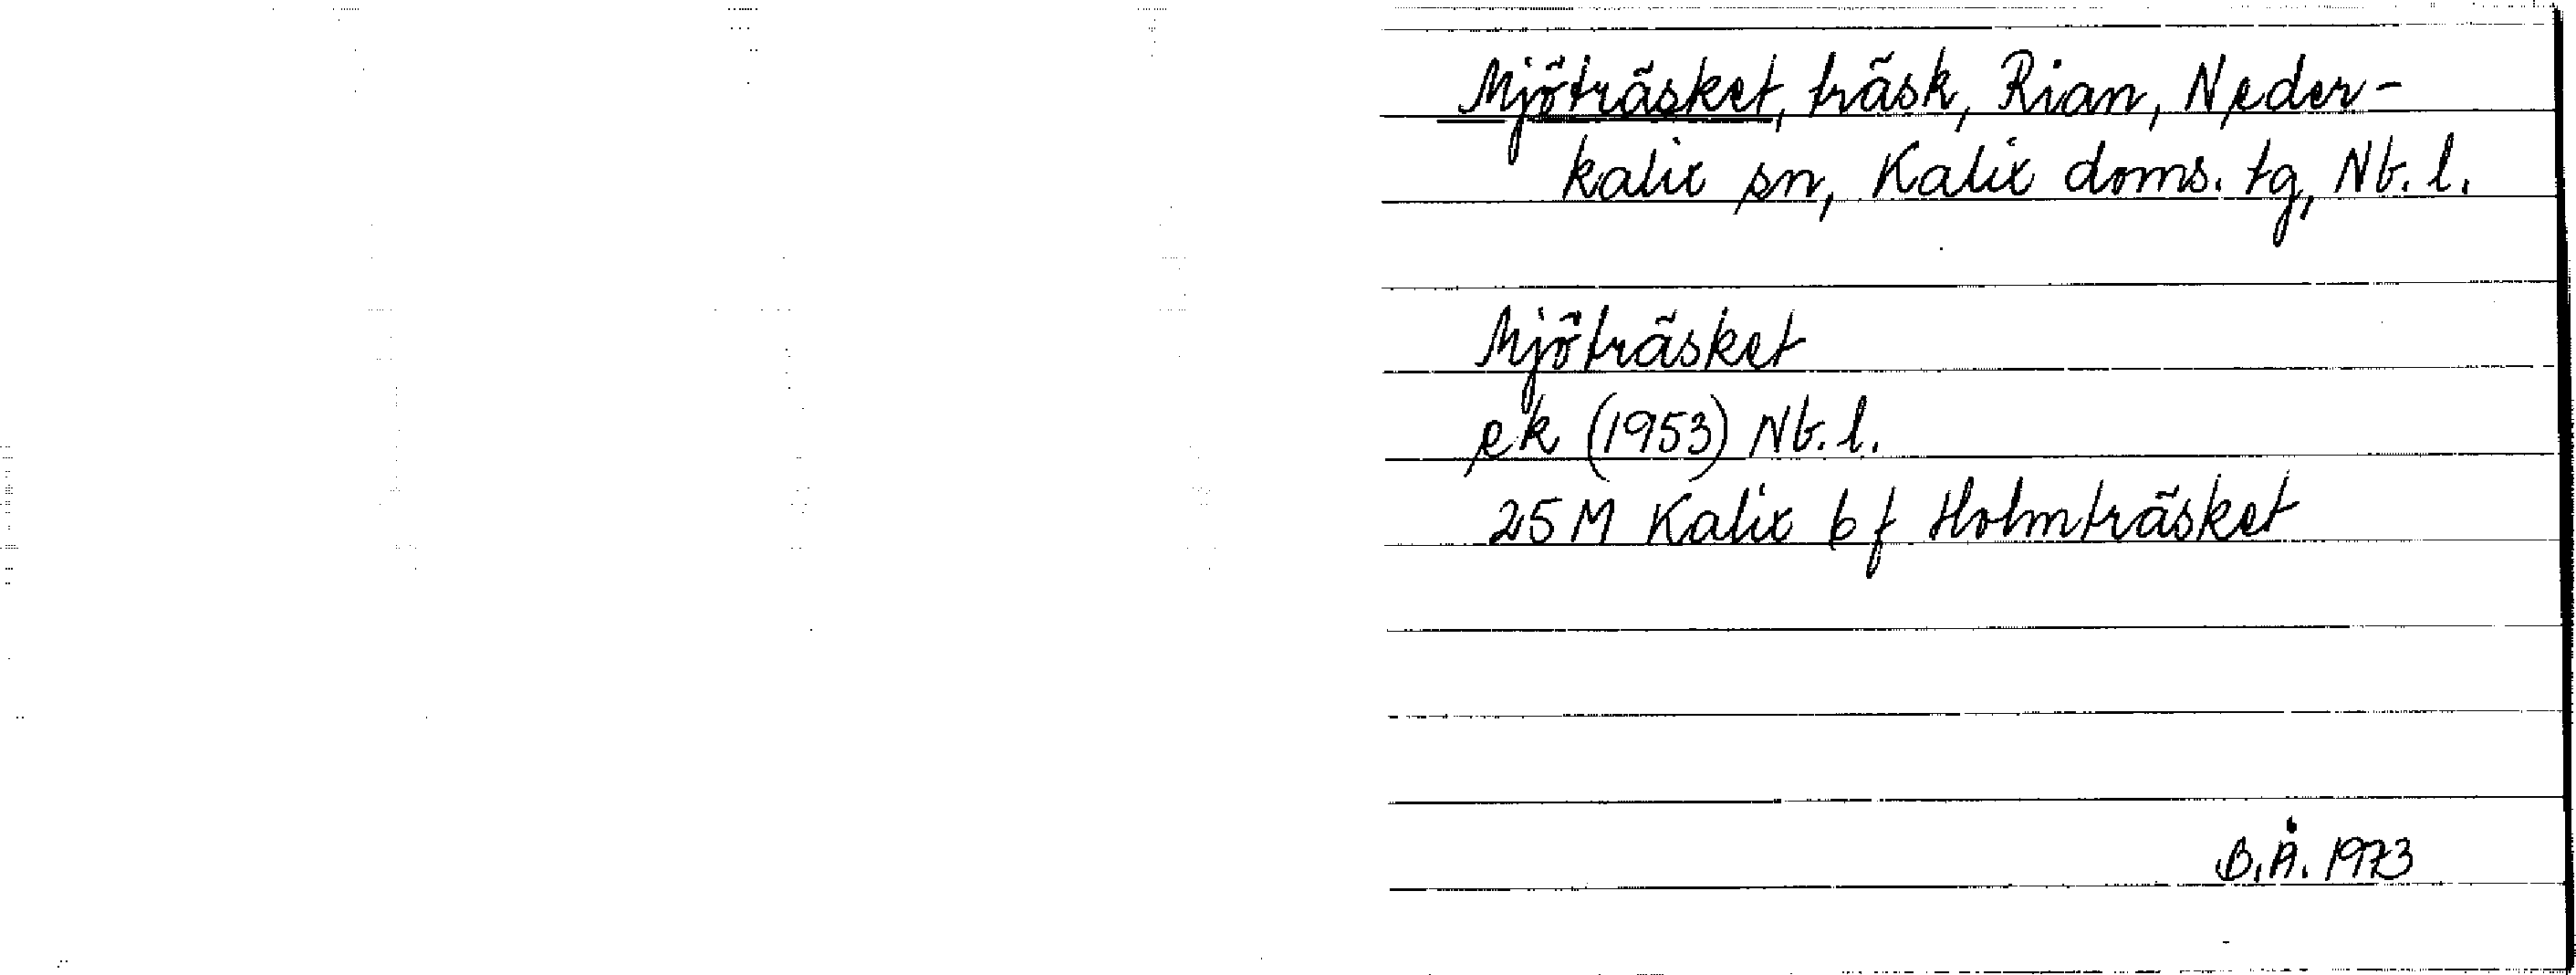 Mjöträsket, träsk, Rian, Neder-
kalix sn, Kalix doms. tg, Nb. l.
Mjöträsket
ek (1953) Nb. l.
25 M Kalix 6 f Holmträsket
B.Å. 1973